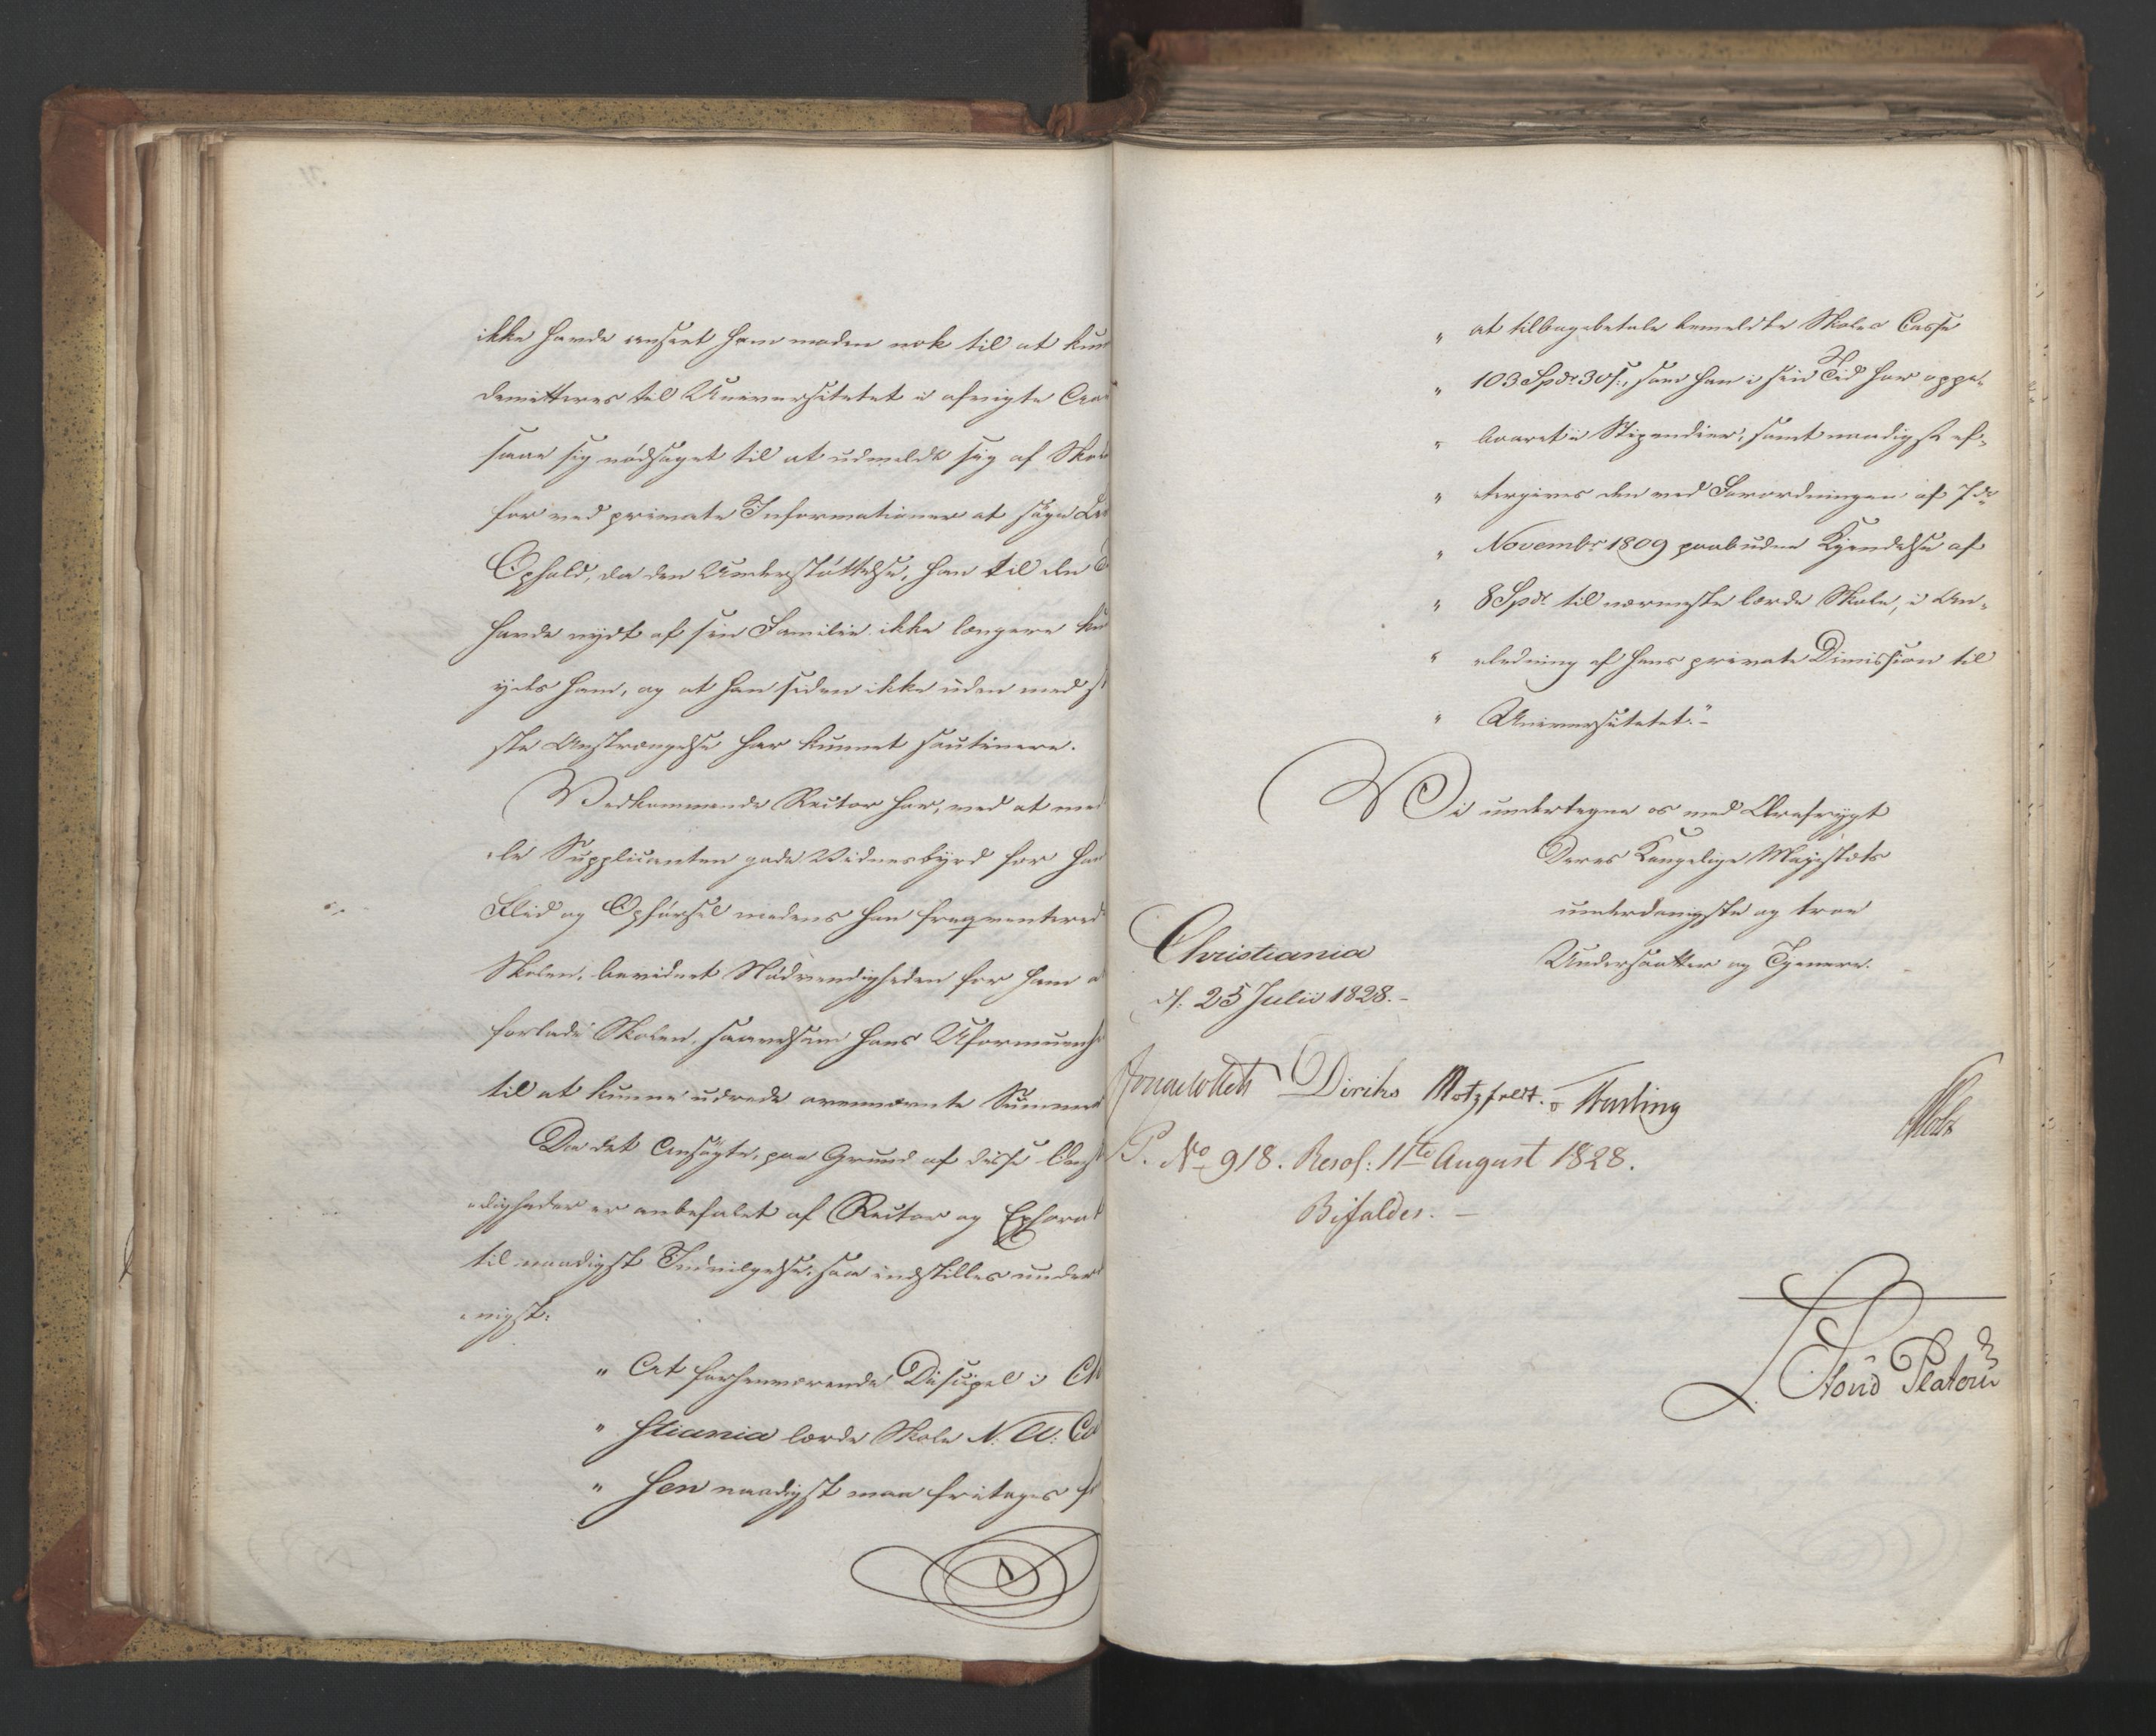 ikke havde anseet ham moden nok til at kun
demitteres til Universitetet i afvigte Aar
saae sig nödsaget til at udmelde sig af Skol
for ved private Informationer at söge
Ophold, da den Understöttelse, han til den
havde nydt af sin Familie ikke længere kun
ydes ham, og at han siden ikke uden med
ste Anstrængelse har kunnet soutinere.
Vedkommende Rector har, ved at med
-le Supplicanten gode Vidnesbyrd for han
Flid og Opförsel medens han freqventered
Skolen, bevidnet Nödvendigheden for ham a
forlade Skolen, saavelsom hans Uformuenh
til at kunne udrede ovennævnte Summer
Da det Ansögte, paa Grund af disse Omst
-digheder er anbefalet af Rector og Ephorat
til naadigst Indvilgelse, saa indstilles under
-nigst:
" At forhenværende Discipel i Ch
" stiania lærde Skole N. A. Co
" hen naadigst maa fritages f
" at tilbagebetale bemeldte Skoles Casse
" 103 Spdr 30 s:, som han i sin Tid har oppe-
" baaret i Stipendier, samt naadigst ef-
" tergives den ved Forordningen af 7de
" Novembr 1809 paabudne Kjendelse af
" 8 Spdr til nærmeste lærde Skole, i An-
" ledning af hans private Dimission til
" Universitetet."-
Vi undertegne os med Ærefrygt
Deres Kongelige Majestæts
underdanigste og troe
Undersaatter og Tjenere.
Christiania
d: 25 Julii 1828.-
Jonas Collett Diriks Motzfeldt. Fasting
Holst
P. No 918. Resol: 11te August 1828.
Bifaldes. -
L. Stoud Platou